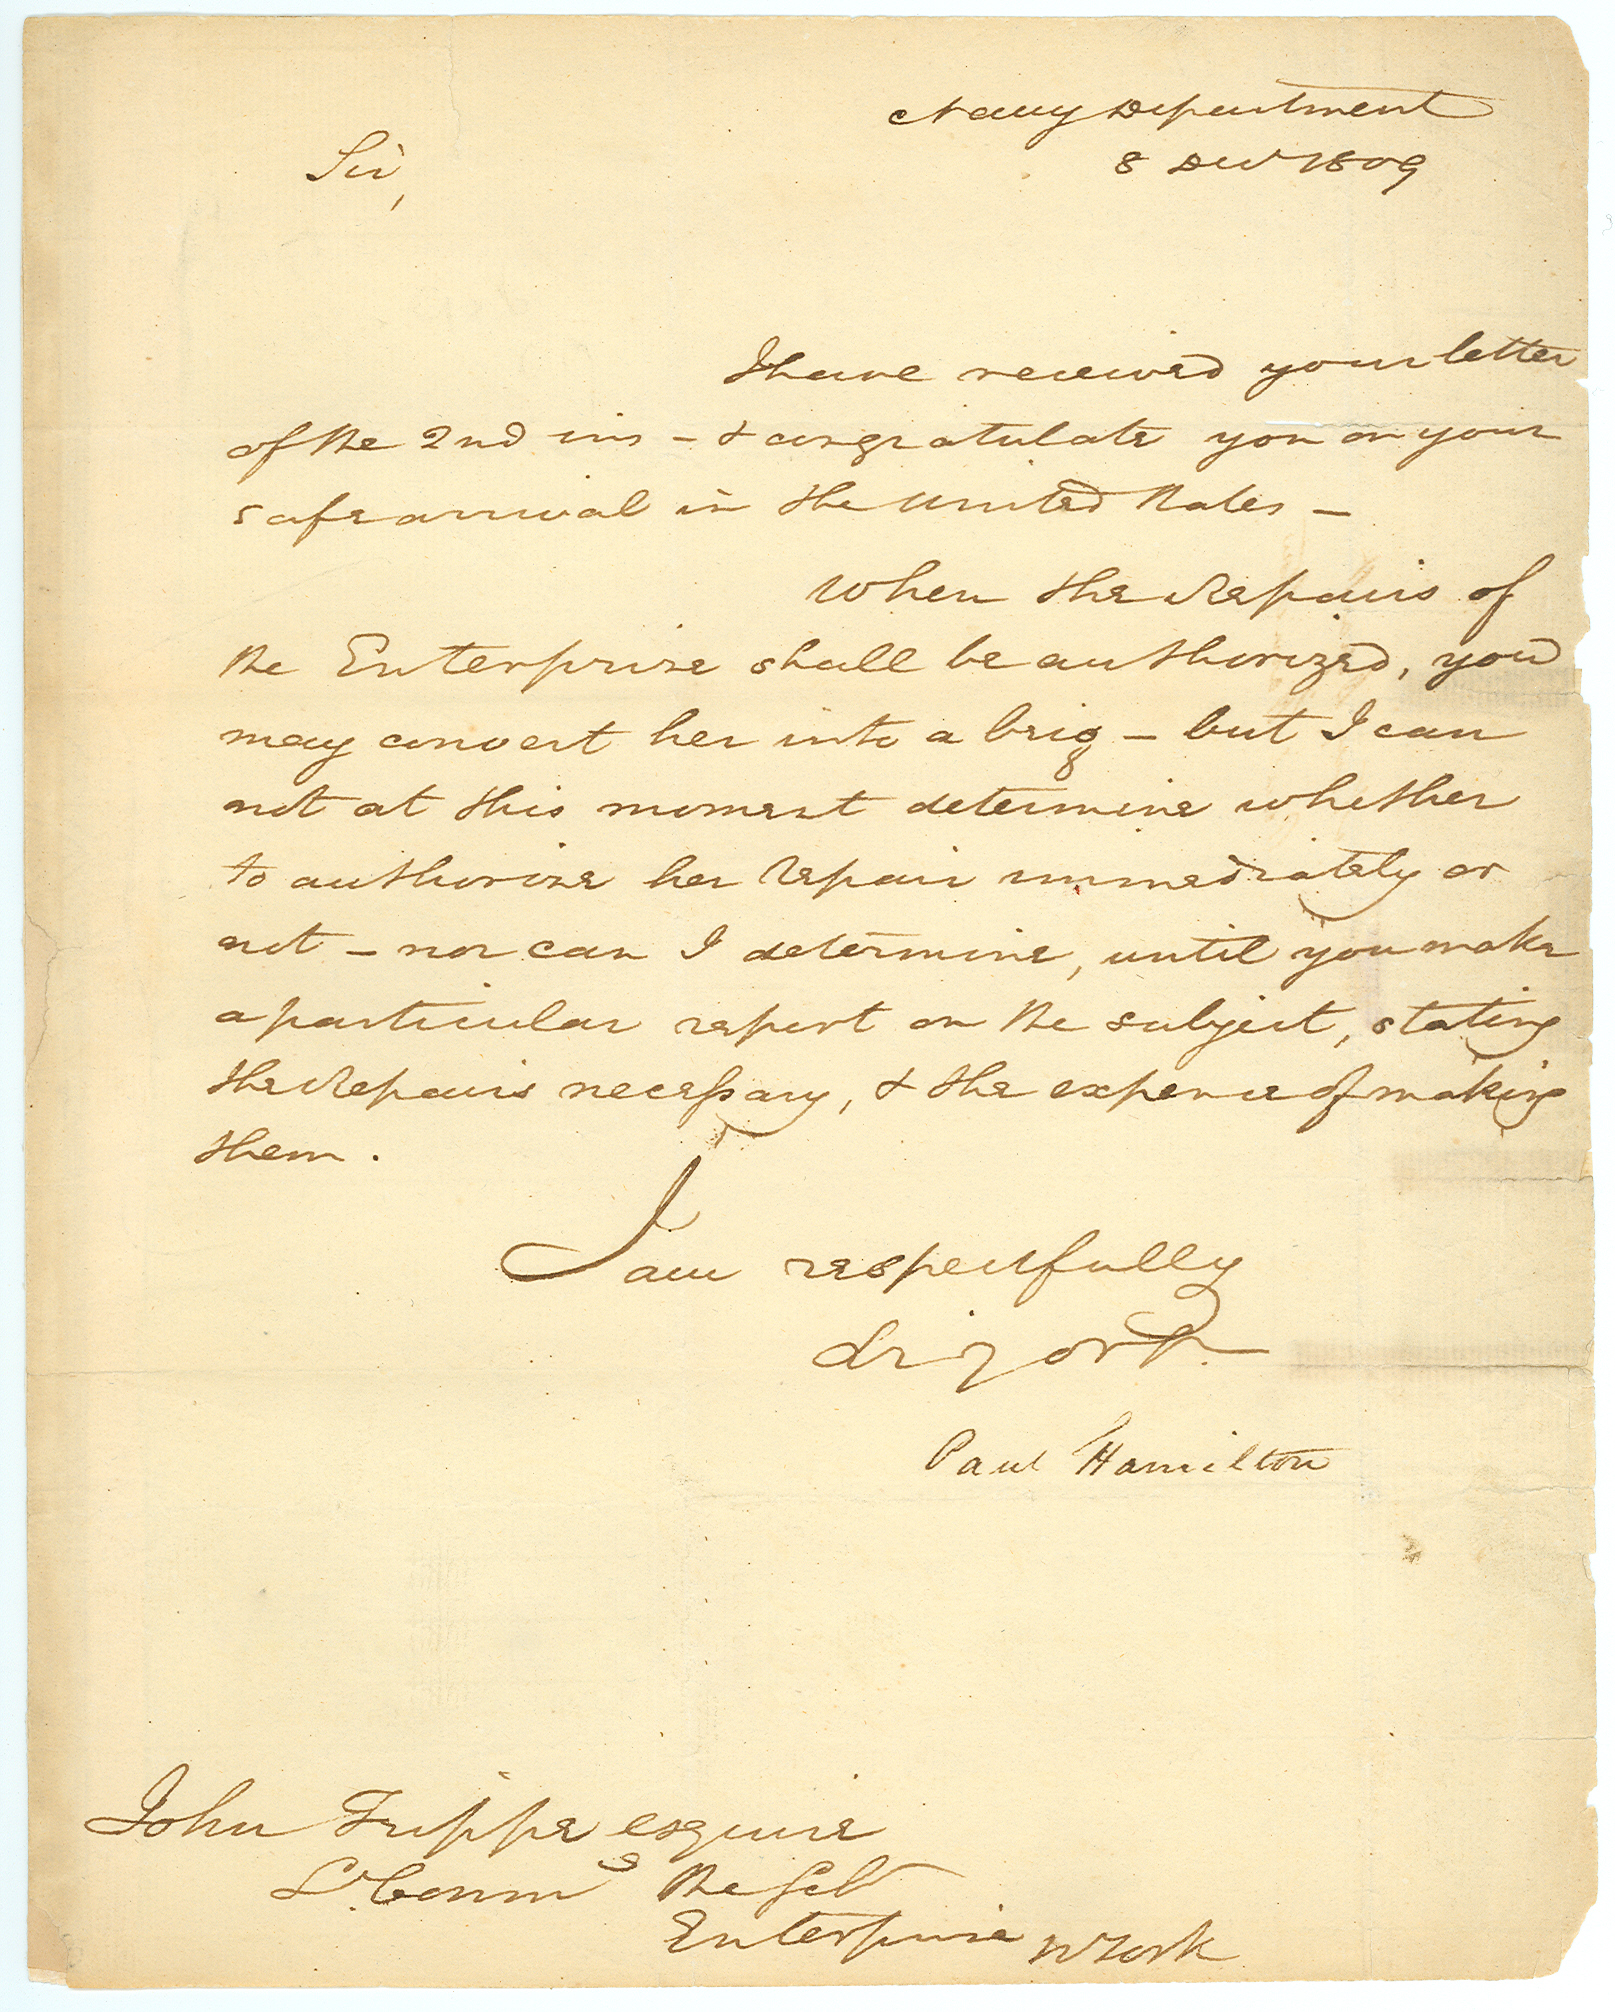 Navy Department
8 Decr 1809
Sir,
I have received your letter
of the 2nd ins - & congratulate you on your
safe arrival in the United States -
When the Repairs of
the Enterprise shall be authorized, you
may convert her into a brig - but I can
not at this moment determine whether
to authorise her repair immediately or
not - nor can I determine, until you make
a particular report on the subject, stating
the Repairs necessary, & the expence of making
them.
I am respectfully
Sir yr ob St.
Paul Hamilton
John Trippe esquire
Lt. Commg the Schr
Enterprise NYork